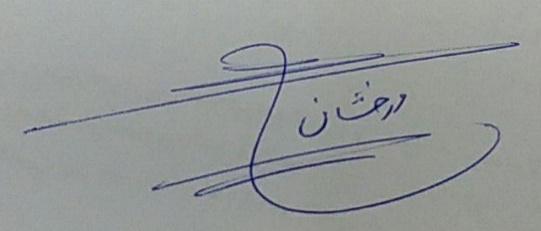 درخشان